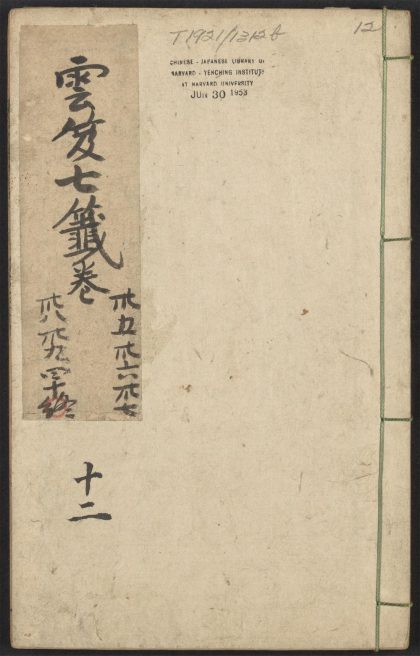 T1921/1312 b
12
CHINESE - JAPANESE LIBRARY OF
HARVARD - YENCHING INSTITUTE
AT HARVARD UNIVERSITY
JUN 30 1953
雲笈七籤卷
卅五卅六卅七
卅八卅九四十終
十二